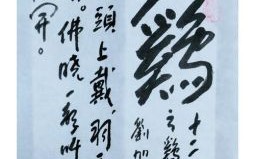 鷄
十二
之鷄
劉
頭上戴,羽
。佛曉一聲叫
開。